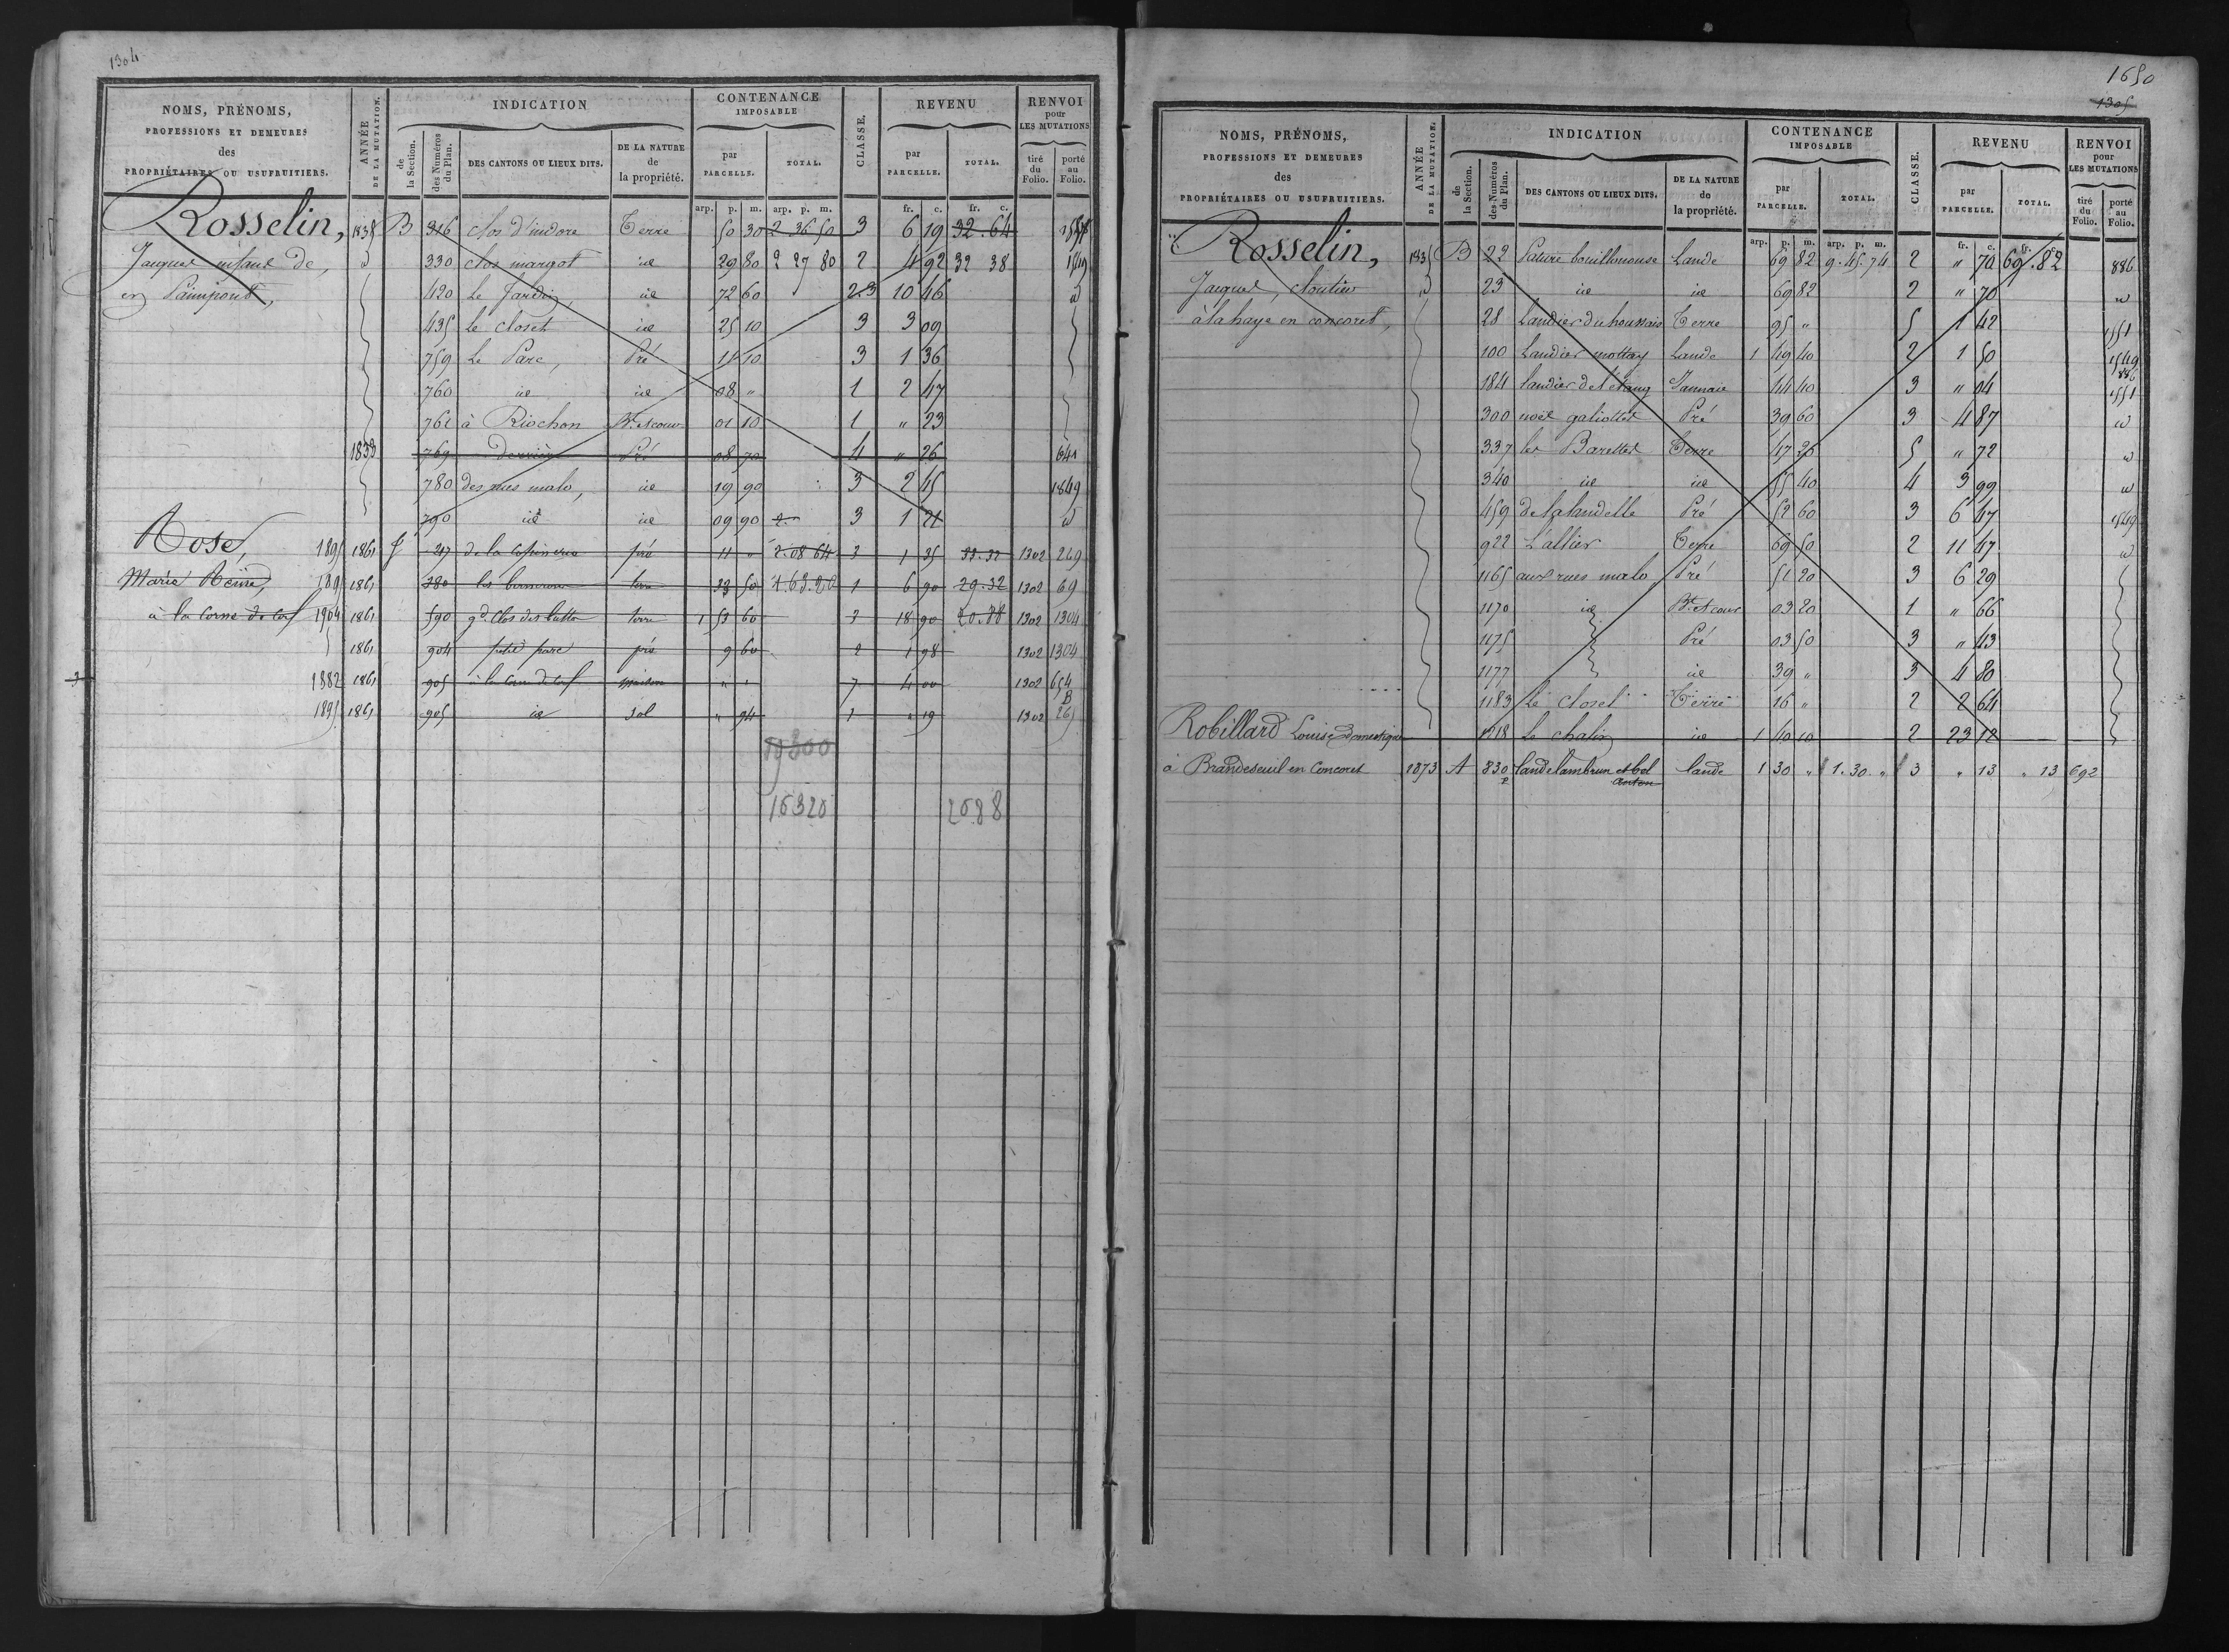 1304
NOMS, PRÉNOMS,
PROFESSIONS ET DEMEURES
des
PROPRIÉTAIRES OU USUFRUITIERS.
ANNÉE DE LA MUTATION.
INDICATION
de la Section.
des Numéros du Plan.
DES CANTONS OU LIEUX DITS.
DE LA NATURE de la propriété.
CONTENANCE IMPOSABLE
par PARCELLE.
TOTAL.
CLASSE.
REVENU
par PARCELLE.
TOTAL.
RENVOI pour LES MUTATIONS
tiré du Folio.
porté au Folio.
arp. p. m. arp. p. m. fr. c. fr. c.
Rosselin, 1835 B 316 clos d'indore Terre 50 30 2 36 50 3 6 19 32.64
Jacques enfans de, id 330 clos margot id 29 80 2 27 80 2 4 92 32 38 1549
en Paimpont, 420 Le Jardin, id 72 60 2.3 10 46 id
435 Le closet id 25 10 3 3 09
759 Le Parc, Pré 11 10 3 1 36
760 id id 08 " 1 2 47
762 à Riochon Bt. et cour 01 10 1 " 23
1838 769 Derrière Pré 08 70 4 " 26 641
780 des rues malo, id 19 90 3 2 45 1849
790 id id 09 90 3 1 21 id
Rose, 1895 1861 J 217 de la pré 11 " 2.08 64 3 1 35 32.32 1302 269
Marie Reine, 1861 380 les terre 33 50 1.63.20 1 6 90 29.32 1302 69
à la Corne de Cerf 1904 1861 590 gd. Clos des buttes terre 1 53 60 3 18 90 20.88 1302 1304
1861 904 petit parc pré 9 60 2 1 98 1302 1304
1882 1861 905 à la Corne de Cerf maison " " 7 4 00 1302 654
B
1895 1861 905 id sol " 94 1 " 19 1302 265
16320 2088
1650
1305
NOMS, PRÉNOMS,
PROFESSIONS ET DEMEURES
des
PROPRIÉTAIRES OU USUFRUITIERS.
ANNÉE DE LA MUTATION.
INDICATION
de la Section.
des Numéros du Plan.
DES CANTONS OU LIEUX DITS.
DE LA NATURE de la propriété.
CONTENANCE IMPOSABLE
par PARCELLE.
TOTAL.
CLASSE.
REVENU
par PARCELLE.
TOTAL.
RENVOI pour LES MUTATIONS
tiré du Folio.
porté au Folio.
arp. p. m. arp. p. m. fr. c. fr. c.
Rosselin, 1835 B 22 Pature bouillonouse Lande 69 82 9.45.74 2 " 70 69.82 886
Jacques, cloutier id 23 id id 69 82 2 " 70 id
à la haye en concoret, 28 Landier du houssais Terre 95 " 5 1 42 1551
100 Landier mottay Lande 1 49 40 2 1 50 1549
184 landier de l'étang Jannaie 44 40 3 " 04 886 1551
300 noë galiottet Pré 39 60 3 4 87 id
337 les Barettes Terre 47 36 5 " 72 id
340 id id 55 40 4 3 99 id
459 de la landelle Pré 52 60 3 6 47 1549
922 L'allier Terre 69 50 2 11 47 id
1165 aux rues malo Pré 51 20 3 6 29
1170 id Bt. et cour 03 20 1 " 66
1175 Pré 03 50 3 " 43
1177 id 39 " 3 4 80
1183 Le closet Terre 16 " 2 2 64
1218 Le chalin id 1 40 10 2 23 12
Robillard Louise domestique
à Brandeseuil en Concoret 1873 A 830 p lande lambrun et bel lande 1 30 " 1.30. " 3 " 13 " 13 692